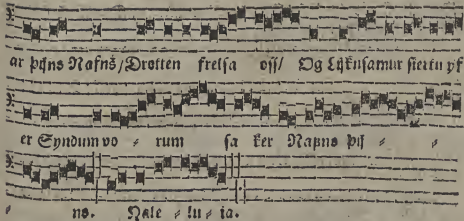 ar þijns Nafns/Drotten frelsa oss/ Og Lijknsamur siertu yf
er Syndum vo ⸗ rum sa ker Nafns þis ⸗ ⸗
⸗ ns. Nale ⸗ lu ⸗ ia.